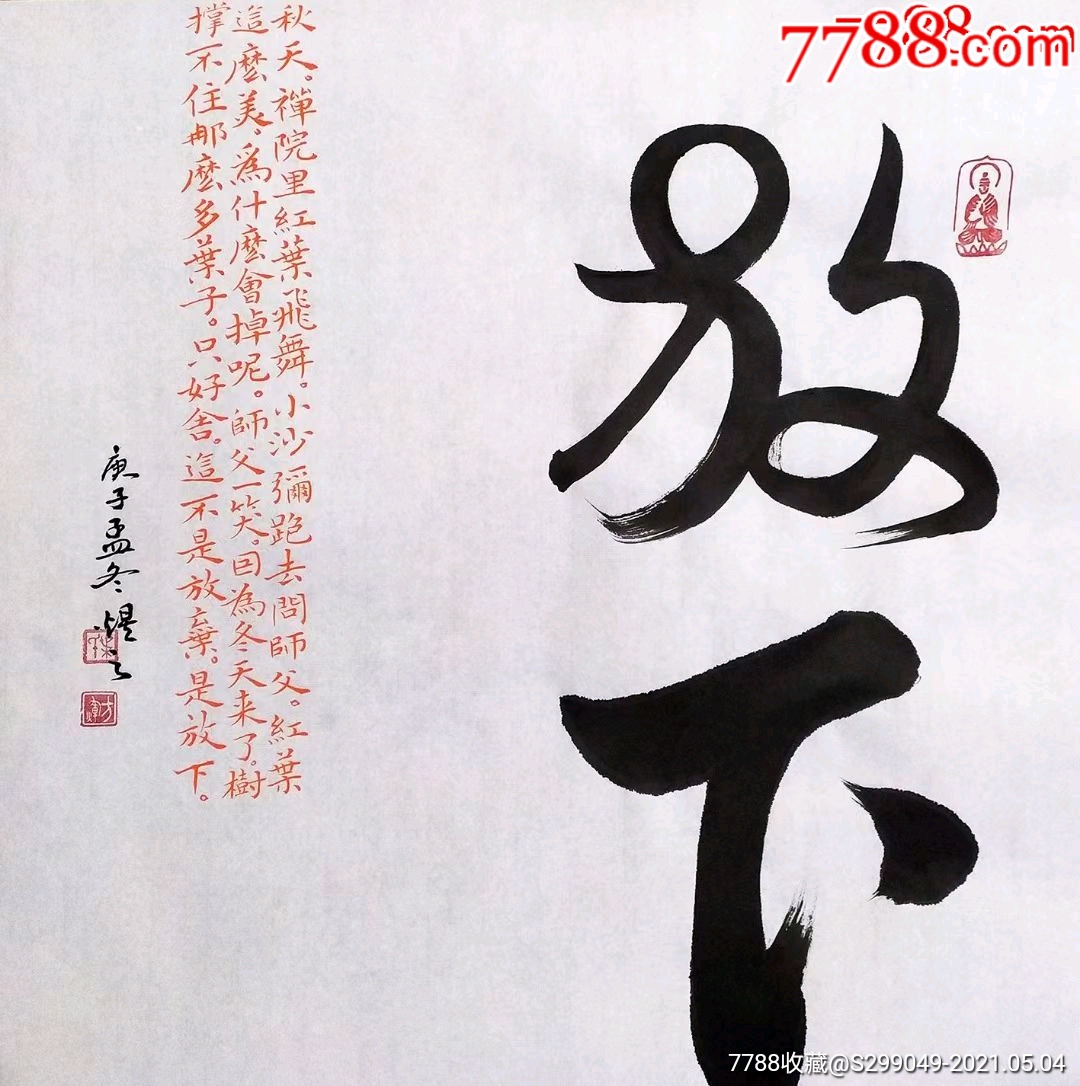 7788.com
放下
秋天。禪院里紅葉飛舞。小沙彌跑去問師父。紅葉
這麼美，為什麼會掉呢。師父一笑。因為冬天来了。樹
撑不住那麼多葉子。只好舍。這不是放棄。是放下。
庚子孟冬煜之
7788收藏@S299049-2021.05.04